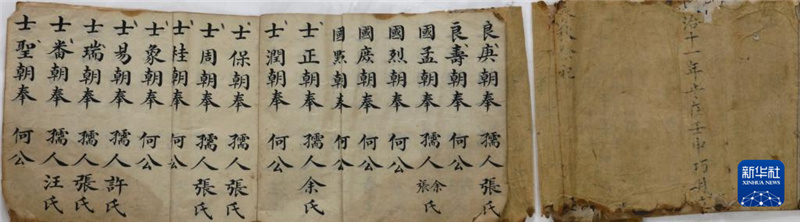 治十一年歲在壬申巧月
良庚朝奉 孺人張氏
良壽朝奉 何公
國孟朝奉 孺人余氏張
國烈朝奉 何公
國慶朝奉 何公
國點朝奉 何公
士正朝奉 孺人余氏
士潤朝奉 何公
士保朝奉 孺人張氏
士周朝奉 孺人張氏
士桂朝奉 何公
士象朝奉 何公
士易朝奉 孺人許氏
士瑞朝奉 孺人張氏
士番朝奉 孺人汪氏
士聖朝奉 何公
新华社
XINHUA NEWS